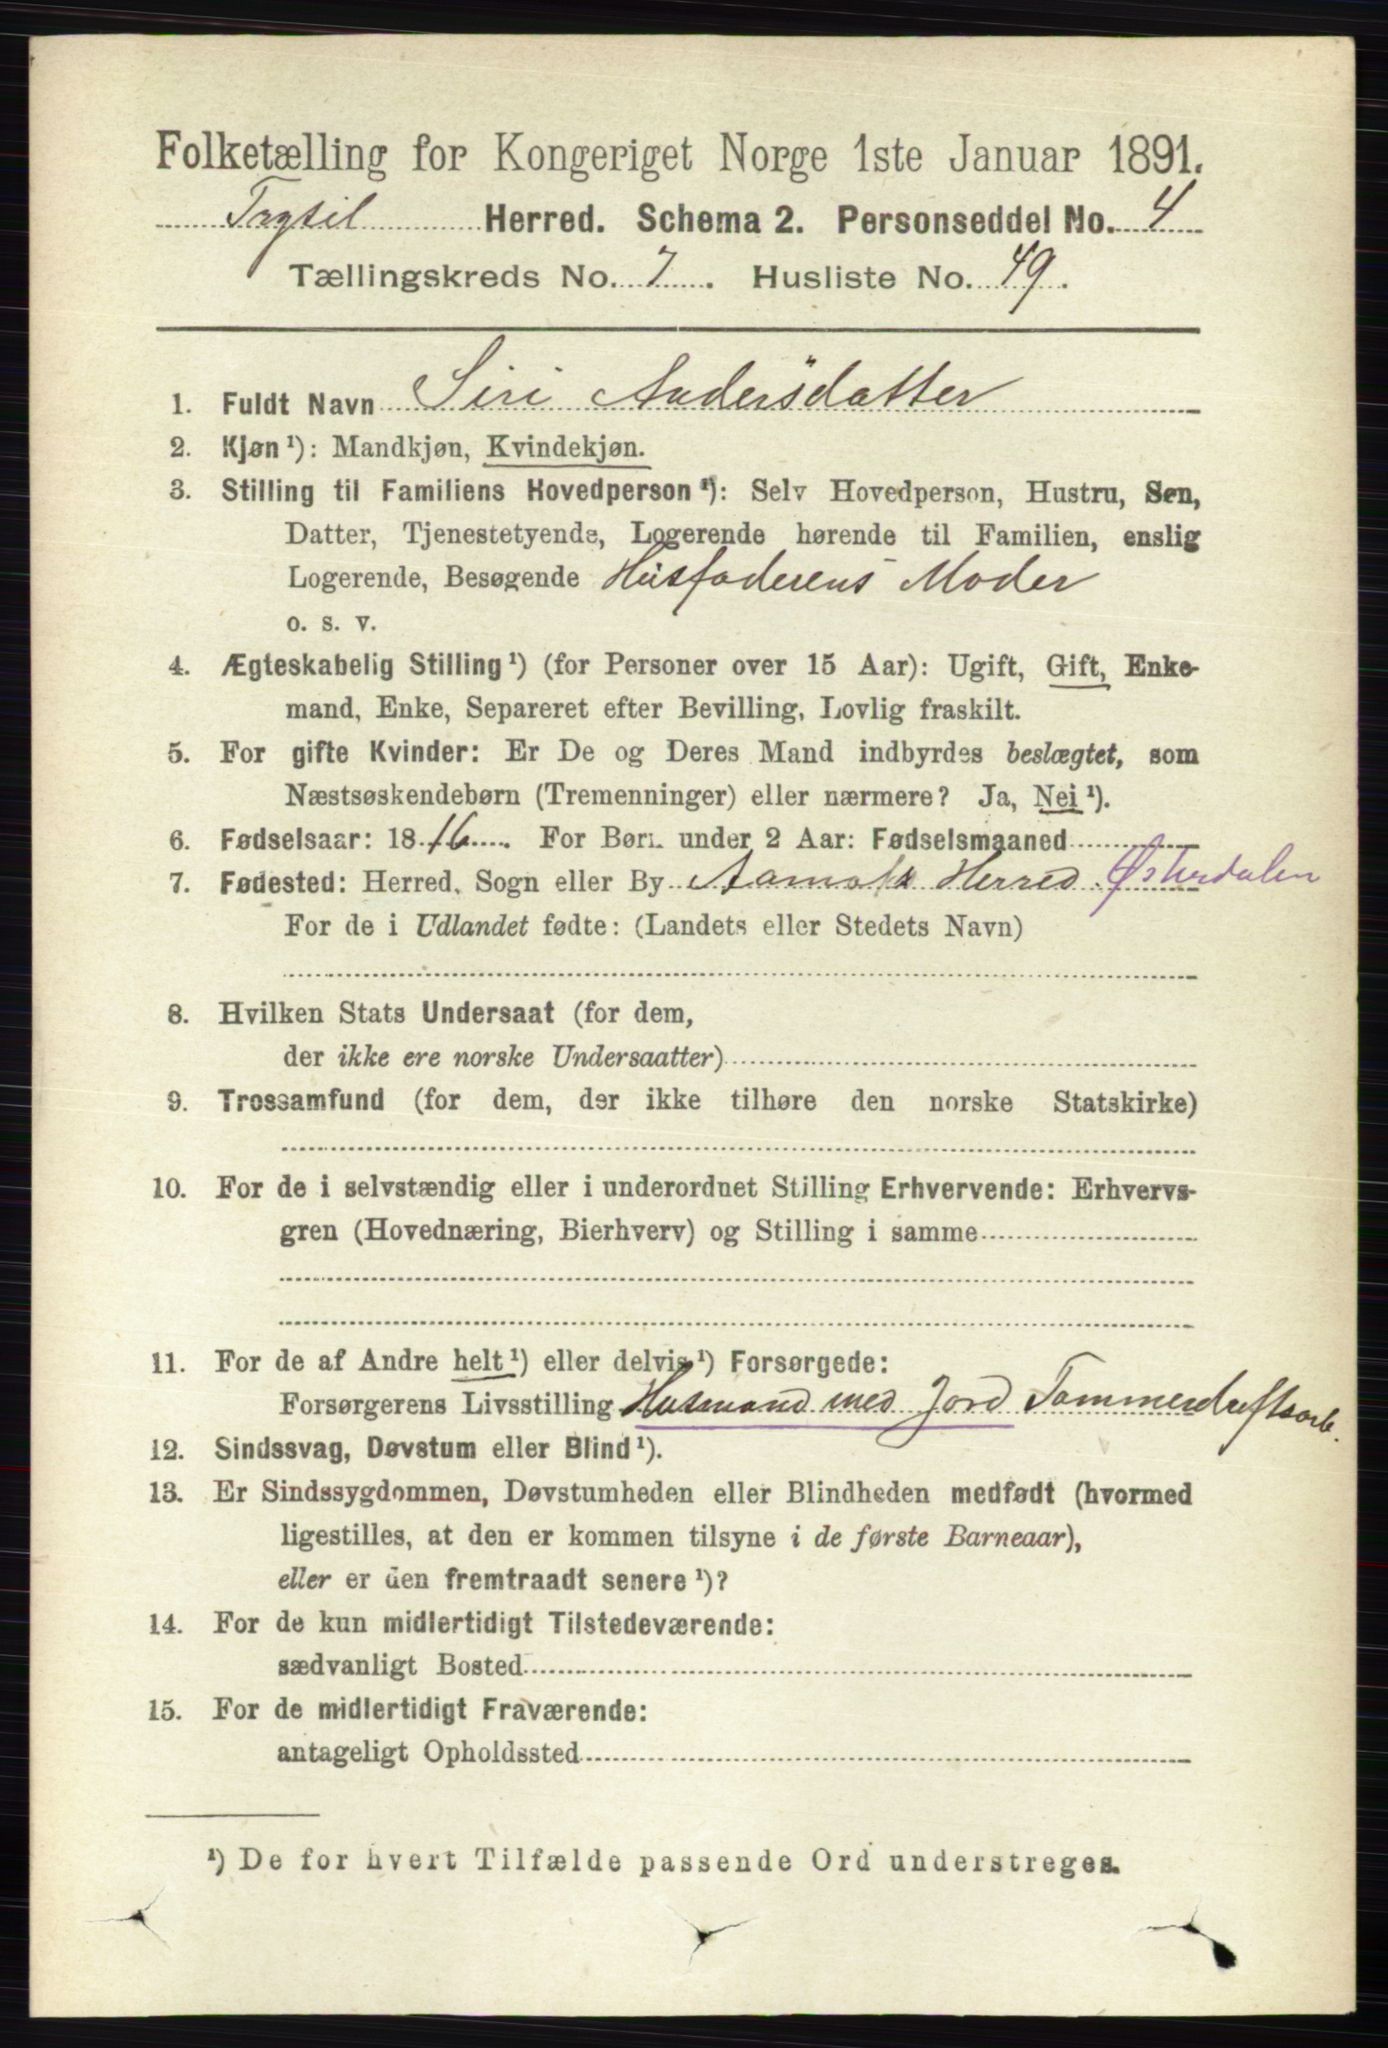 Folketælling for Kongeriget Norge 1ste Januar 1891.
Trysil Herred. Schema 2. Personseddel No. 4
Tællingskreds No. 7. Husliste No. 49.
1. Fuldt Navn Siri Andersdatter
2. Kjøn¹): Mandkjøn, Kvindekjøn.
3. Stilling til Familiens Hovedperson¹): Selv Hovedperson, Hustru, Søn,
Datter, Tjenestetyende, Logerende hørende til Familien, enslig
Logerende, Besøgende Husfaderens Moder
o. s. v.
4. Ægteskabelig Stilling¹) (for Personer over 15 Aar): Ugift, Gift, Enke-
mand, Enke, Separeret efter Bevilling, Lovlig fraskilt.
5. For gifte Kvinder: Er De og Deres Mand indbyrdes beslægtet, som
Næstsøskendebørn (Tremenninger) eller nærmere? Ja, Nei¹).
6. Fødselsaar: 1816. For Børn under 2 Aar: Fødselsmaaned
7. Fødested: Herred, Sogn eller By Aamots Herred Østerdalen
For de i Udlandet fødte: (Landets eller Stedets Navn)
8. Hvilken Stats Undersaat (for dem,
der ikke ere norske Undersaatter)
9. Trossamfund (for dem, der ikke tilhøre den norske Statskirke)
10. For de i selvstændig eller i underordnet Stilling Erhvervende: Erhvervs-
gren (Hovednæring, Bierhverv) og Stilling i samme
11. For de af Andre helt¹) eller delvis¹) Forsørgede:
Forsørgerens Livsstilling Husmand med Jord Tømmerdriftsarb.
12. Sindssvag, Døvstum eller Blind¹).
13. Er Sindssygdommen, Døvstumheden eller Blindheden medfødt (hvormed
ligestilles, at den er kommen tilsyne i de første Barneaar),
eller er den fremtraadt senere¹)?
14. For de kun midlertidigt Tilstedeværende:
sædvanligt Bosted
15. For de midlertidigt Fraværende:
antageligt Opholdssted
¹) De for hvert Tilfælde passende Ord understreges.